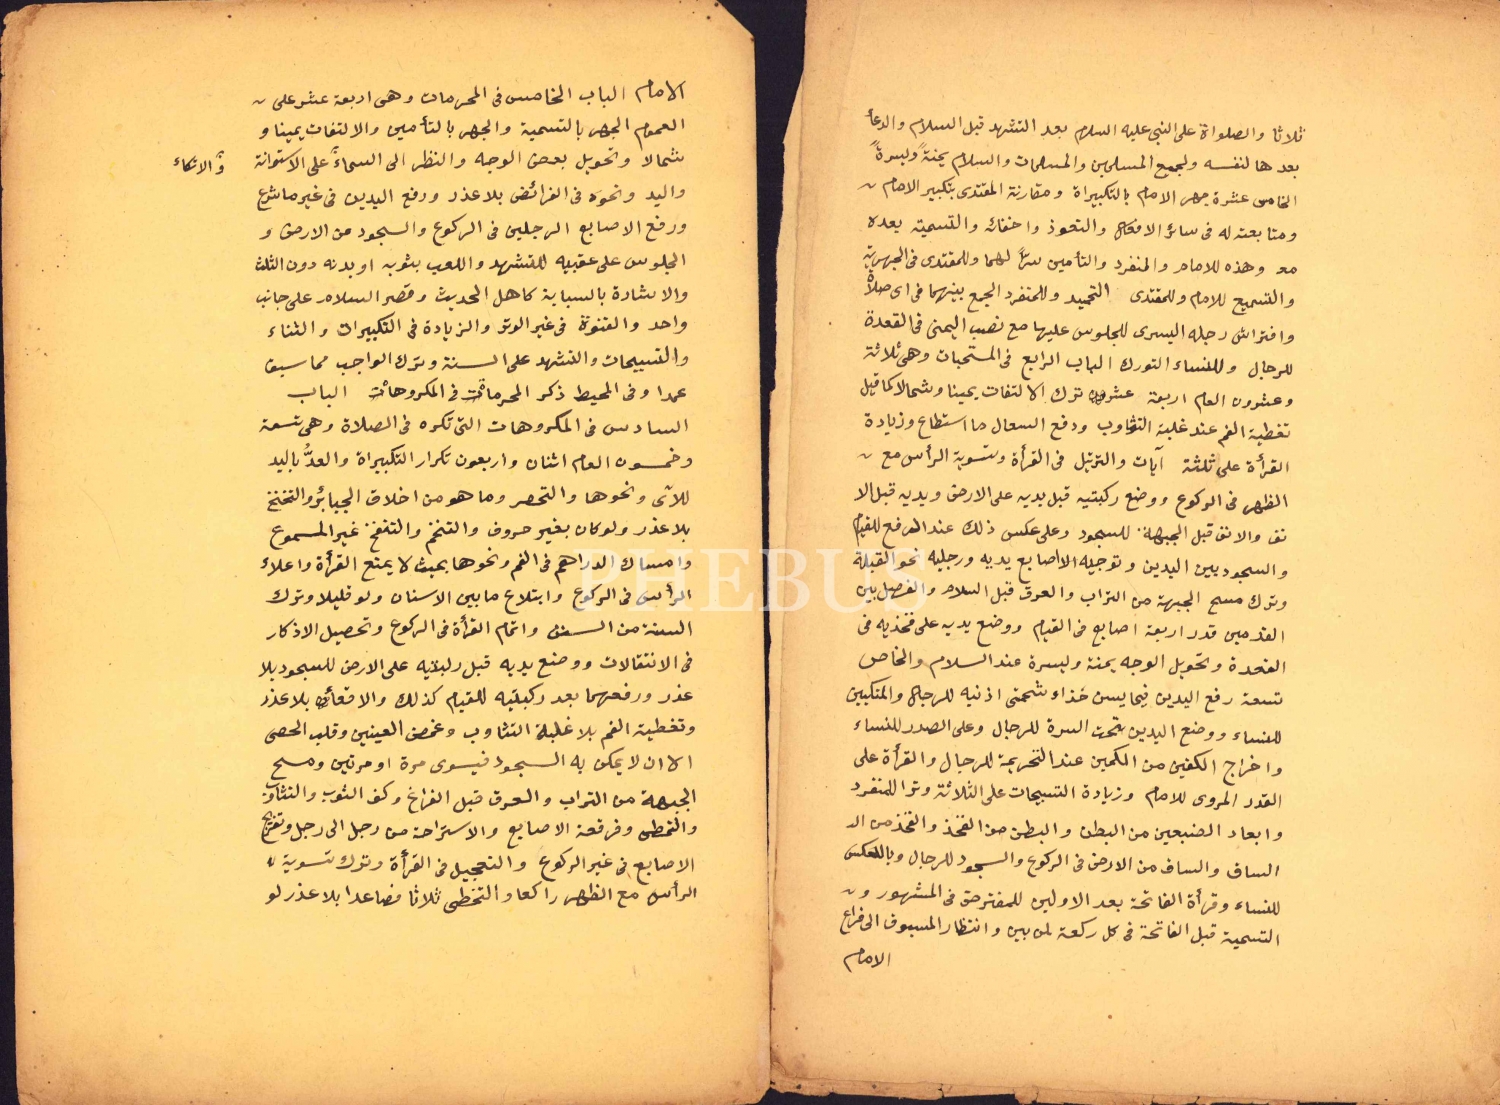 ثلاثا والصلواة على النبى عليه السلام بعد التشهد قبل السلام والدعأ
بعدها لنفسه ولجميع المسلمين والمسلمات والسلام يمنة ويسرة
الخامس عشرة جهر الامام بالتكبيراة ومقارنة المقتدى بتكبير الامام
ومتابعته له فى سائر الافعال والتعوذ واخفائه والتسمية بعده
مع وهذه للامام والمنفرد والتأمين سرًا لهما وللمقتدى فى الجهرية
والتسميع للامام وللمقتدى التحميد وللمنفرد الجمع بينهما فى اى صلاة
وافتراش رجله اليسرى للجلوس عليها مع نصب اليمنى فى القعدة
للرجال وللنساء التورك الباب الرابع فى المستحبات وهى ثلاثة
وعشرون العام اربعة عشر ترك الالتفات يمينا وشمالا كما قيل
تغطية الفم عند غلبة التثاوب ودفع السعال ما استطاع وزيادة
القرأة على ثلثة آيات والترتيل فى القرأة وتسوية الرأس مع
الظهر فى الركوع ووضع ركبتيه قبل يديه على الارض ويديه قبل الا
نف والانف قبل الجبهة للسجود وعلى عكس ذلك عند الرفع للقيام
والسجود بين اليدين وتوجيه الاصابع يديه ورجليه نحو القبلة
وترك مسح الجبهة من التراب والعرق قبل السلام والفصل بين
القدمين قدر اربعة اصابع فى القيام ووضع يديه على فخذيه فى
القعدة وتحويل الوجه يمنة ويسرة عند السلام والخاص
تسعة رفع اليدين فيما يسن حذاء شحمتى اذنيه للرجال والمنكبين
للنساء ووضع اليدين تحت السرة للرجال وعلى الصدر للنساء
واخراج الكفين من الكمين عند التحريمة للرجال والقرأة على
القدر المروى للامام وزيادة التسبيحات على الثلاثة وترا للمنفرد
وابعاد الضبعين من البطن والبطن من الفخذ والفخذ من الـ
الساق والساق من الارض فى الركوع والسجود للرجال وبالعكس
للنساء وقرأة الفاتحة بعد الاوليين للمفترض فى المشهور و
التسمية قبل الفاتحة فى كل ركعة وانتظار المسبوق الى فراغ
الامام
الامام الباب الخامس فى المحرمات وهى اربعة عشر على
العموم الجهر بالتسمية والجهر بالتأمين والالتفات يمينا و
شمالا وتحويل بعض الوجه والنظر الى السماء على الاستوانة
والاتكاء
واليد ونحوه فى الفرائض بلا عذر ورفع اليدين فى غير ما شرع
ورفع الاصابع الرجلين فى الركوع والسجود من الارض و
الجلوس على عقبيه للتشهد واللعب بثوبه او بدنه دون الثلث
والاشارة بالسبابة كاهل الحديث وقصر السلام على جانب
واحد والقنوة فى غير الوتر والزيادة فى التكبيرات والثناء
والتسبيحات والتشهد على السنة وترك الواجب مما سبق
عمدا وفى المحيط ذكر المحرمات فى المكروهات الباب
السادس فى المكروهات التى تكره فى الصلاة وهى تسعة
وخمسون العام اثنان واربعون تكرار التكبيراة والعدُّ باليد
للآى ونحوها والتخصر وما هو من اخلاق الجبابرة والتنحنح
بلا عذر ولو كان بغير حروف والتنخم والتنفخ غير المسموع
وامساك الدراهم فى الفم ونحوها بحيث لا يمنع القرأة واعلاء
الرأس فى الركوع وابتلاع ما بين الاسنان ولو قليلا وترك
السنة من السنن واتمام القرأة فى الركوع وتحصيل الاذكار
فى الانتقالات ووضع يديه قبل ركبتيه على الارض للسجود بلا
عذر ورفعهما بعد ركبتيه للقيام كذلك والاقعاء بلا عذر
وتغطية الفم بلا غلبة التثاوب وغمض العينين وقلب الحصى
الا ان لا يمكن به السجود فيسوى مرة او مرتين ومسح
الجبهة من التراب والعرق قبل الفراغ وكف الثوب والتثاوب
والتمطى وفرقعة الاصابع والاستراحة من رجل الى رجل وتفريج
الاصابع فى غير الركوع والتعجيل فى القرأة وترك تسوية
الرأس مع الظهر راكعا والتخطى ثلاثا فصاعدا بلا عذر لو
PHEBUS